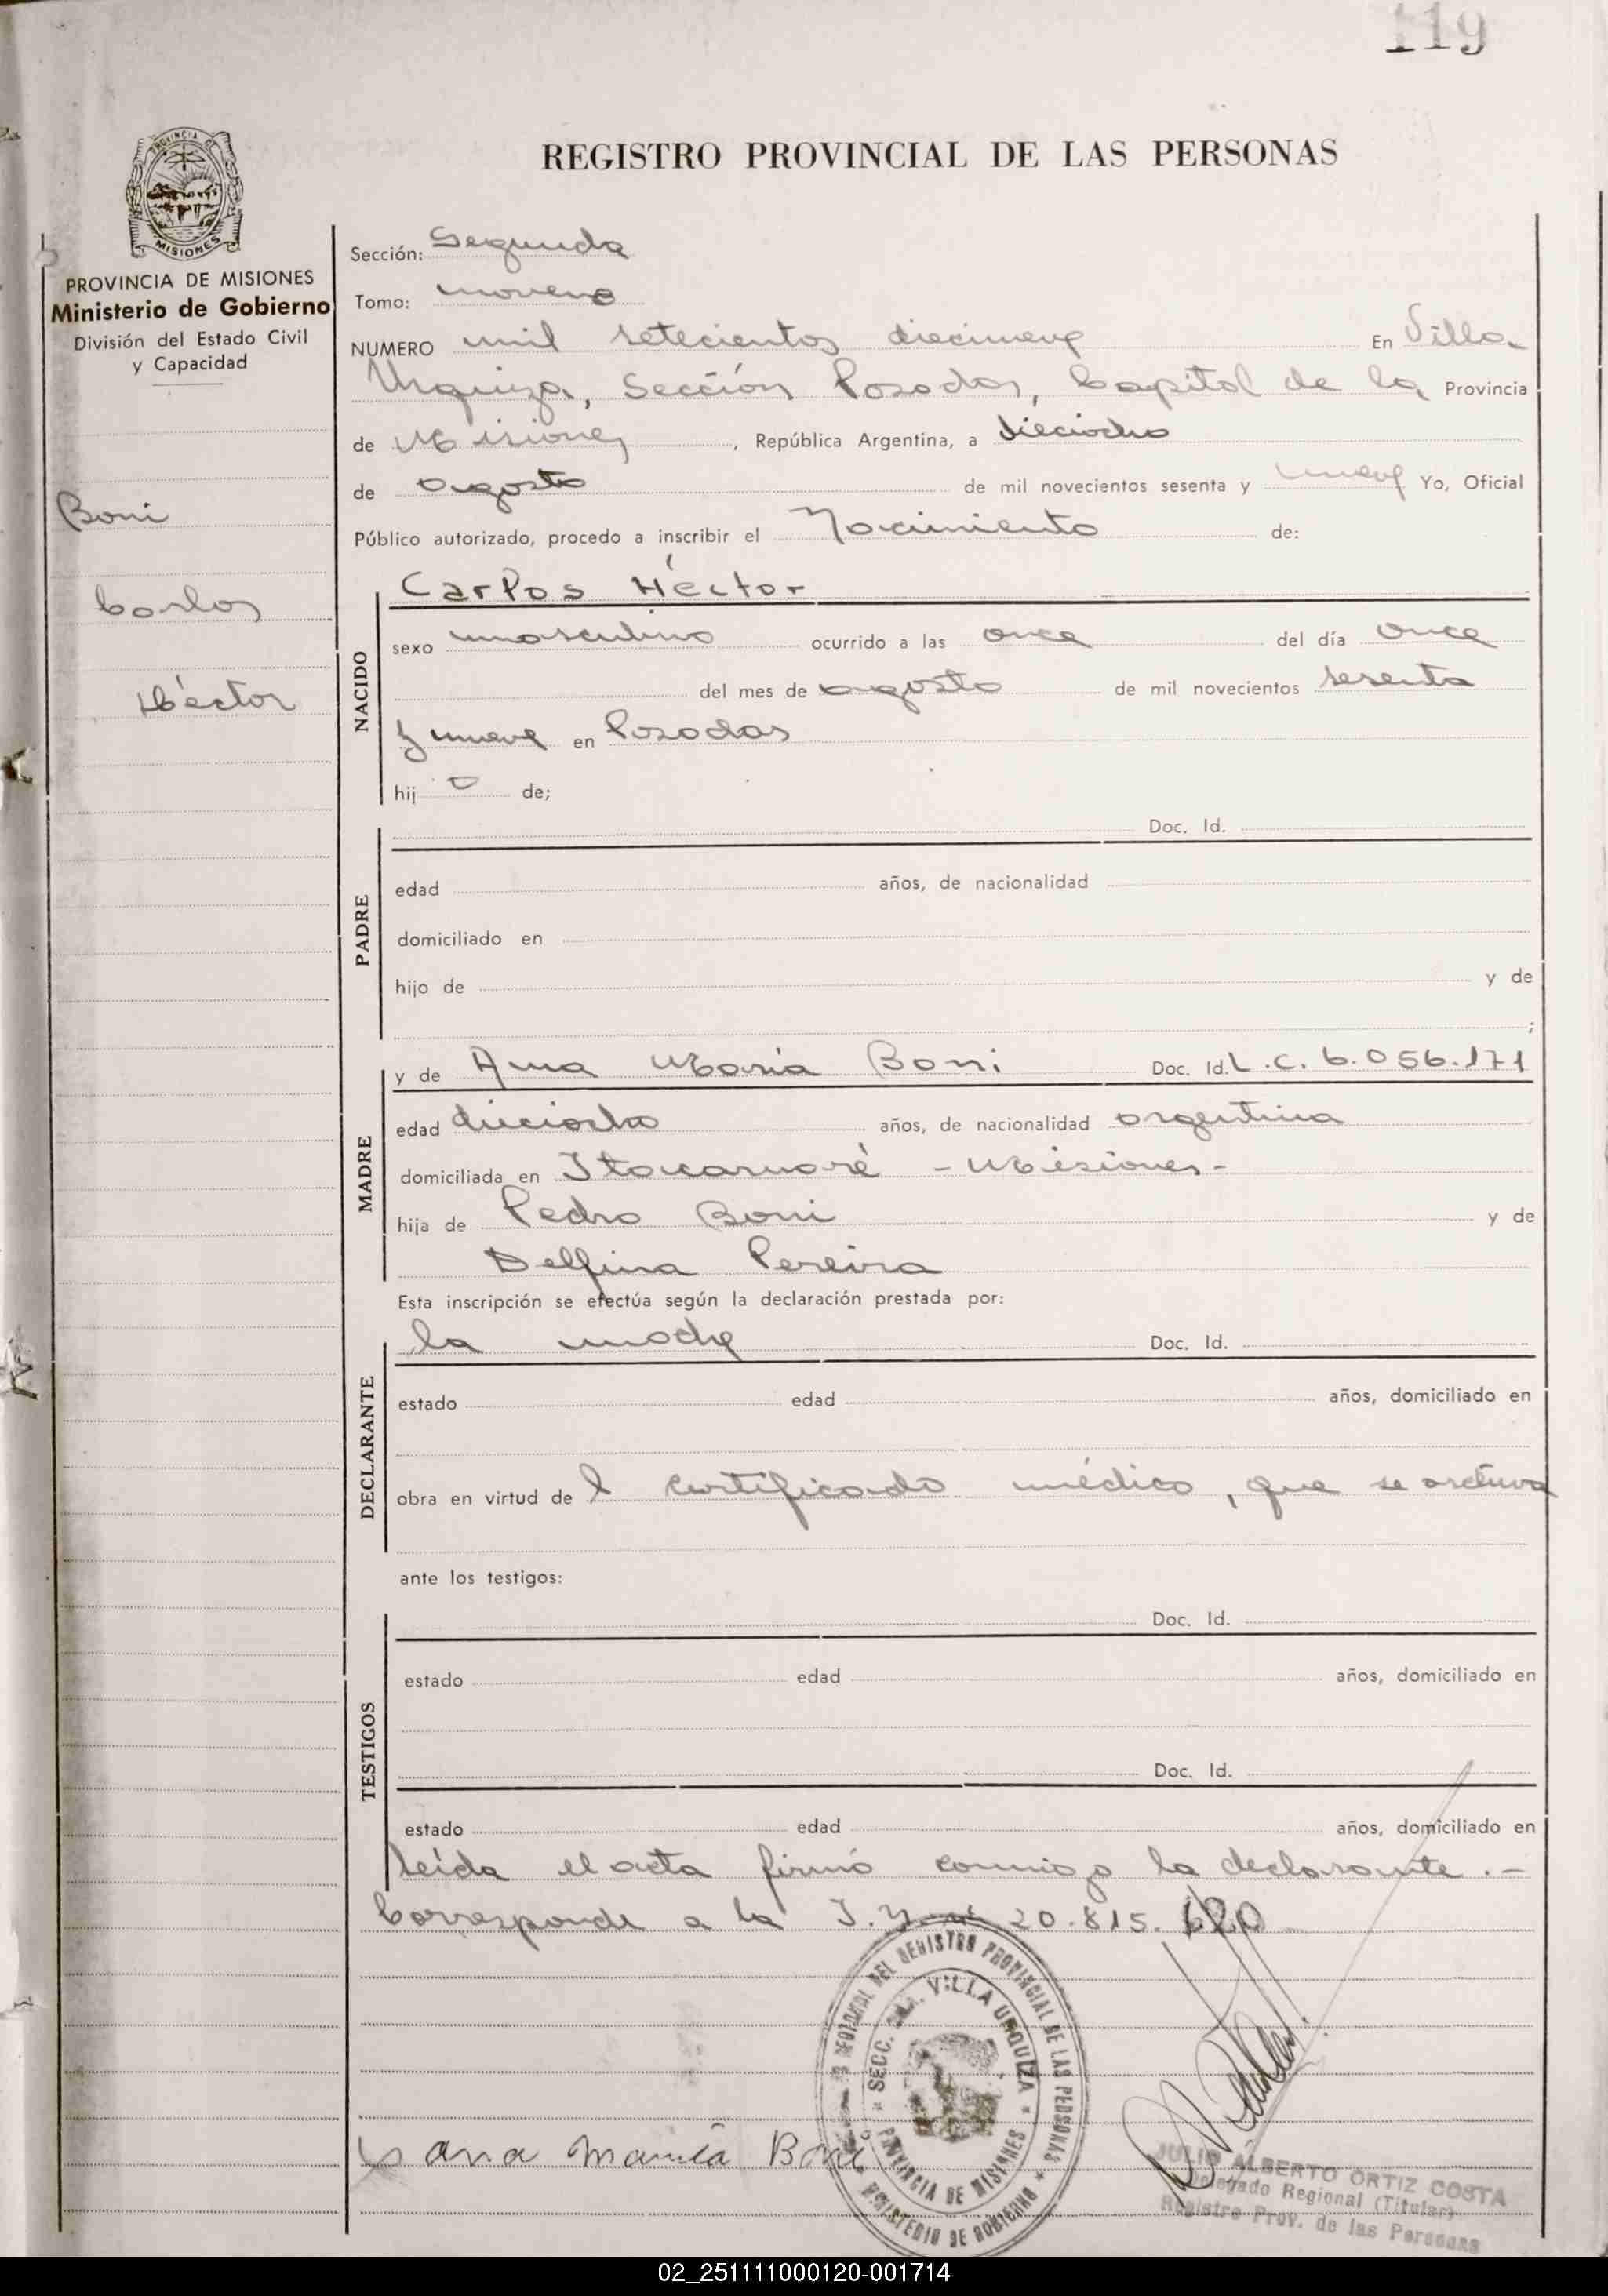 119
REGISTRO PROVINCIAL DE LAS PERSONAS
PROVINCIA DE MISIONES
PROVINCIA DE MISIONES
Ministerio de Gobierno
División del Estado Civil
y Capacidad
Boni
Carlos
Héctor
Sección: Segunda
Tomo: noveno
NUMERO mil setecientos diecinueve En Villa
Urquiza, Sección Posadas, Capital de la Provincia
de Misiones, República Argentina, a dieciocho
de agosto de mil novecientos sesenta y nueve Yo, Oficial
Público autorizado, procedo a inscribir el Nacimiento de:
NACIDO
Carlos Héctor
sexo masculino ocurrido a las once del día once
del mes de agosto de mil novecientos sesenta
y nueve en Posadas
hij o de;
PADRE
Doc. Id.
edad años, de nacionalidad
domiciliado en
hijo de y de
;
MADRE
y de Ana María Boni Doc. Id. L.C. 6.056.171
edad dieciocho años, de nacionalidad argentina
domiciliada en Itacaruaré - Misiones -
hija de Pedro Boni y de
Delfina Pereira
Esta inscripción se efectúa según la declaración prestada por:
DECLARANTE
la madre Doc. Id.
estado edad años, domiciliado en
obra en virtud de l certificado médico, que se archiva
ante los testigos:
TESTIGOS
Doc. Id.
estado edad años, domiciliado en
Doc. Id.
estado edad años, domiciliado en
leída el acta firmó conmigo la declarante.-
Corresponde a la 20.815.
REGISTRO PROVINCIAL DE LAS PERSONAS
SECC. VILLA URQUIZA
PROVINCIA DE MISIONES
MINISTERIO DE GOBIERNO
ana maria Boni
JULIO ALBERTO ORTIZ COSTA
Delegado Regional (Titular)
Registro Prov. de las Personas
02_251111000120-001714